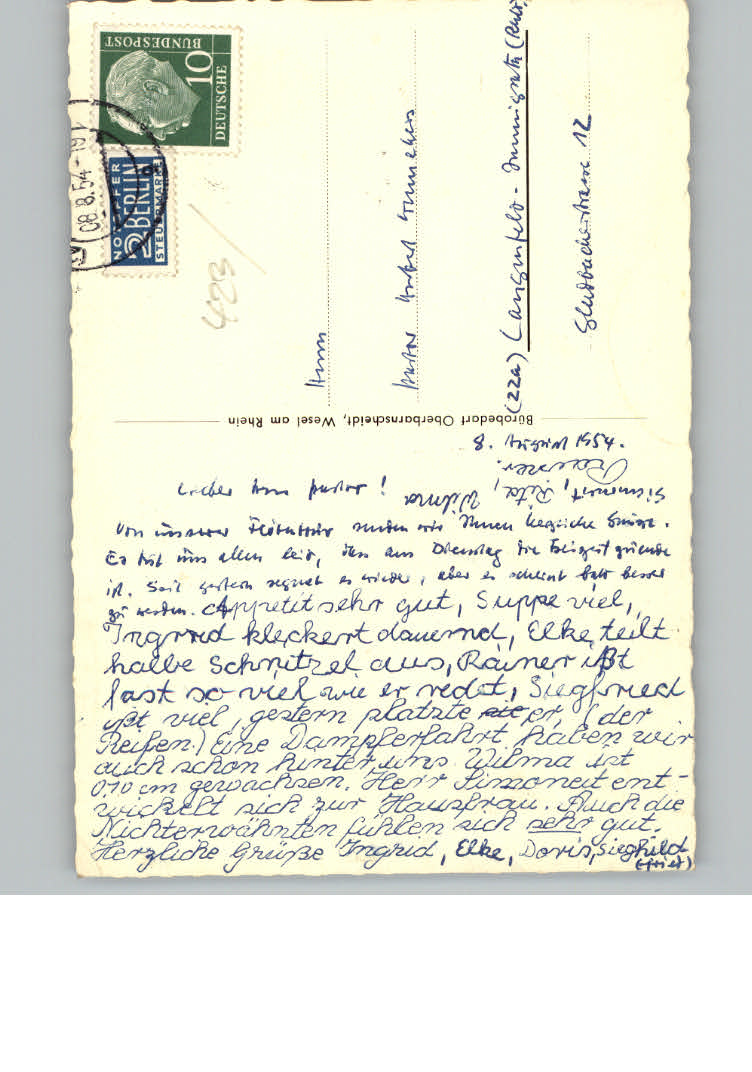 DEUTSCHE
BUNDESPOST
10
NOTOPFER
2 BERLIN
STEUERMARKE
08.8.54-19
423
Herrn
Pastor Herbert
(22a) Langenfeld-Immigrath (Rhld.
Gladbacherstrasse 12
Bürobedarf Oberbarnscheidt, Wesel am Rhein
8. August 1954.
Lieber Herr Pastor!
Von unserer senden wir Ihnen herzliche Grüsse.
Es tut uns allen leid, dass am Dienstag die Freizeit zuende
ist. Seit gestern regnet es wieder, aber es scheint bald besser
zu werden. Appetit sehr gut, Suppe viel,
Ingrid kleckert dauernd, Elke teilt
halbe Schnitzel aus, Rainer ißt
fast so viel wie er redet, Siegfried
ißt viel, gestern platzte er, (der
Reifen.) Eine Dampferfahrt haben wir
auch schon hinter uns. Wilma ist
0,10 cm gewachsen. Herr Simoneit ent-
wickelt sich zur Hausfrau. Auch die
Nichterwähnten fühlen sich sehr gut.
Herzliche Grüße Ingrid, Elke, Doris, Sieghild
(fried)
Simoneit, Rita, Wilma
Rainer.